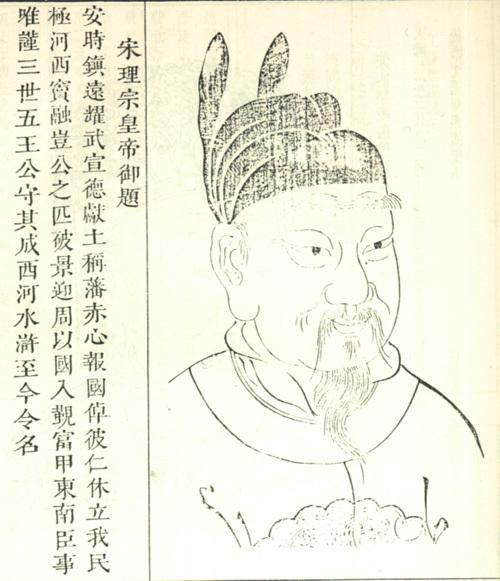 宋理宗皇帝御題
安時鎮遠耀武宣德獻土稱藩赤心報國倬彼仁休立我民
極河西竇融豈公之匹破景迎周以國入覲富甲東南臣事
唯謹三世五王公守其成西河水滸至今令名